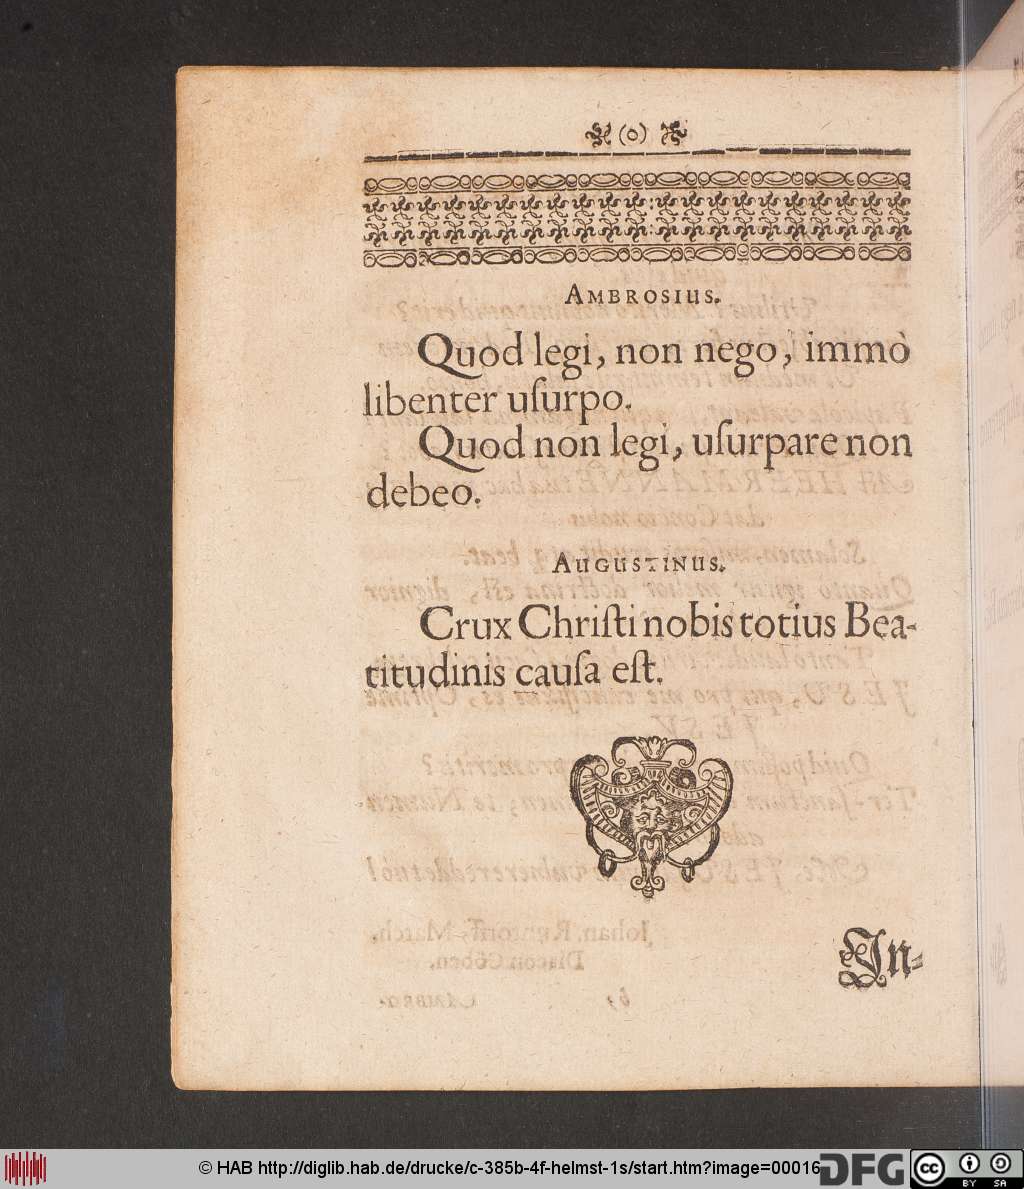 (o)
AMBROSIUS.
Quod legi, non nego, immò
libenter uſurpo.
Quod non legi, uſurpare non
debeo.
AUGUSTINUS.
Crux Chriſti nobis totius Bea-
titudinis cauſa eſt.
In-
© HAB http://diglib.hab.de/drucke/c-385b-4f-helmst-1s/start.htm?image=00016
DFG
cc
BY
SA